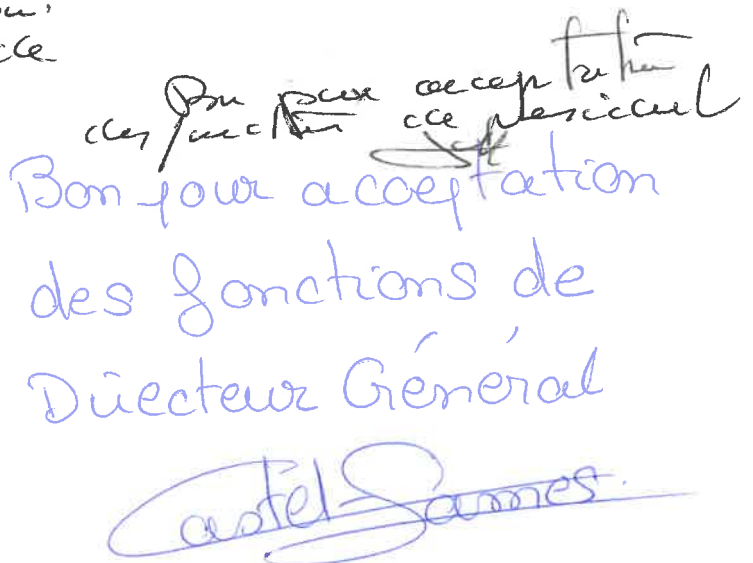 Bon pour acceptation
des fonctions de président
Bon pour acceptation
des fonctions de
Directeur Général
Castel-Sames